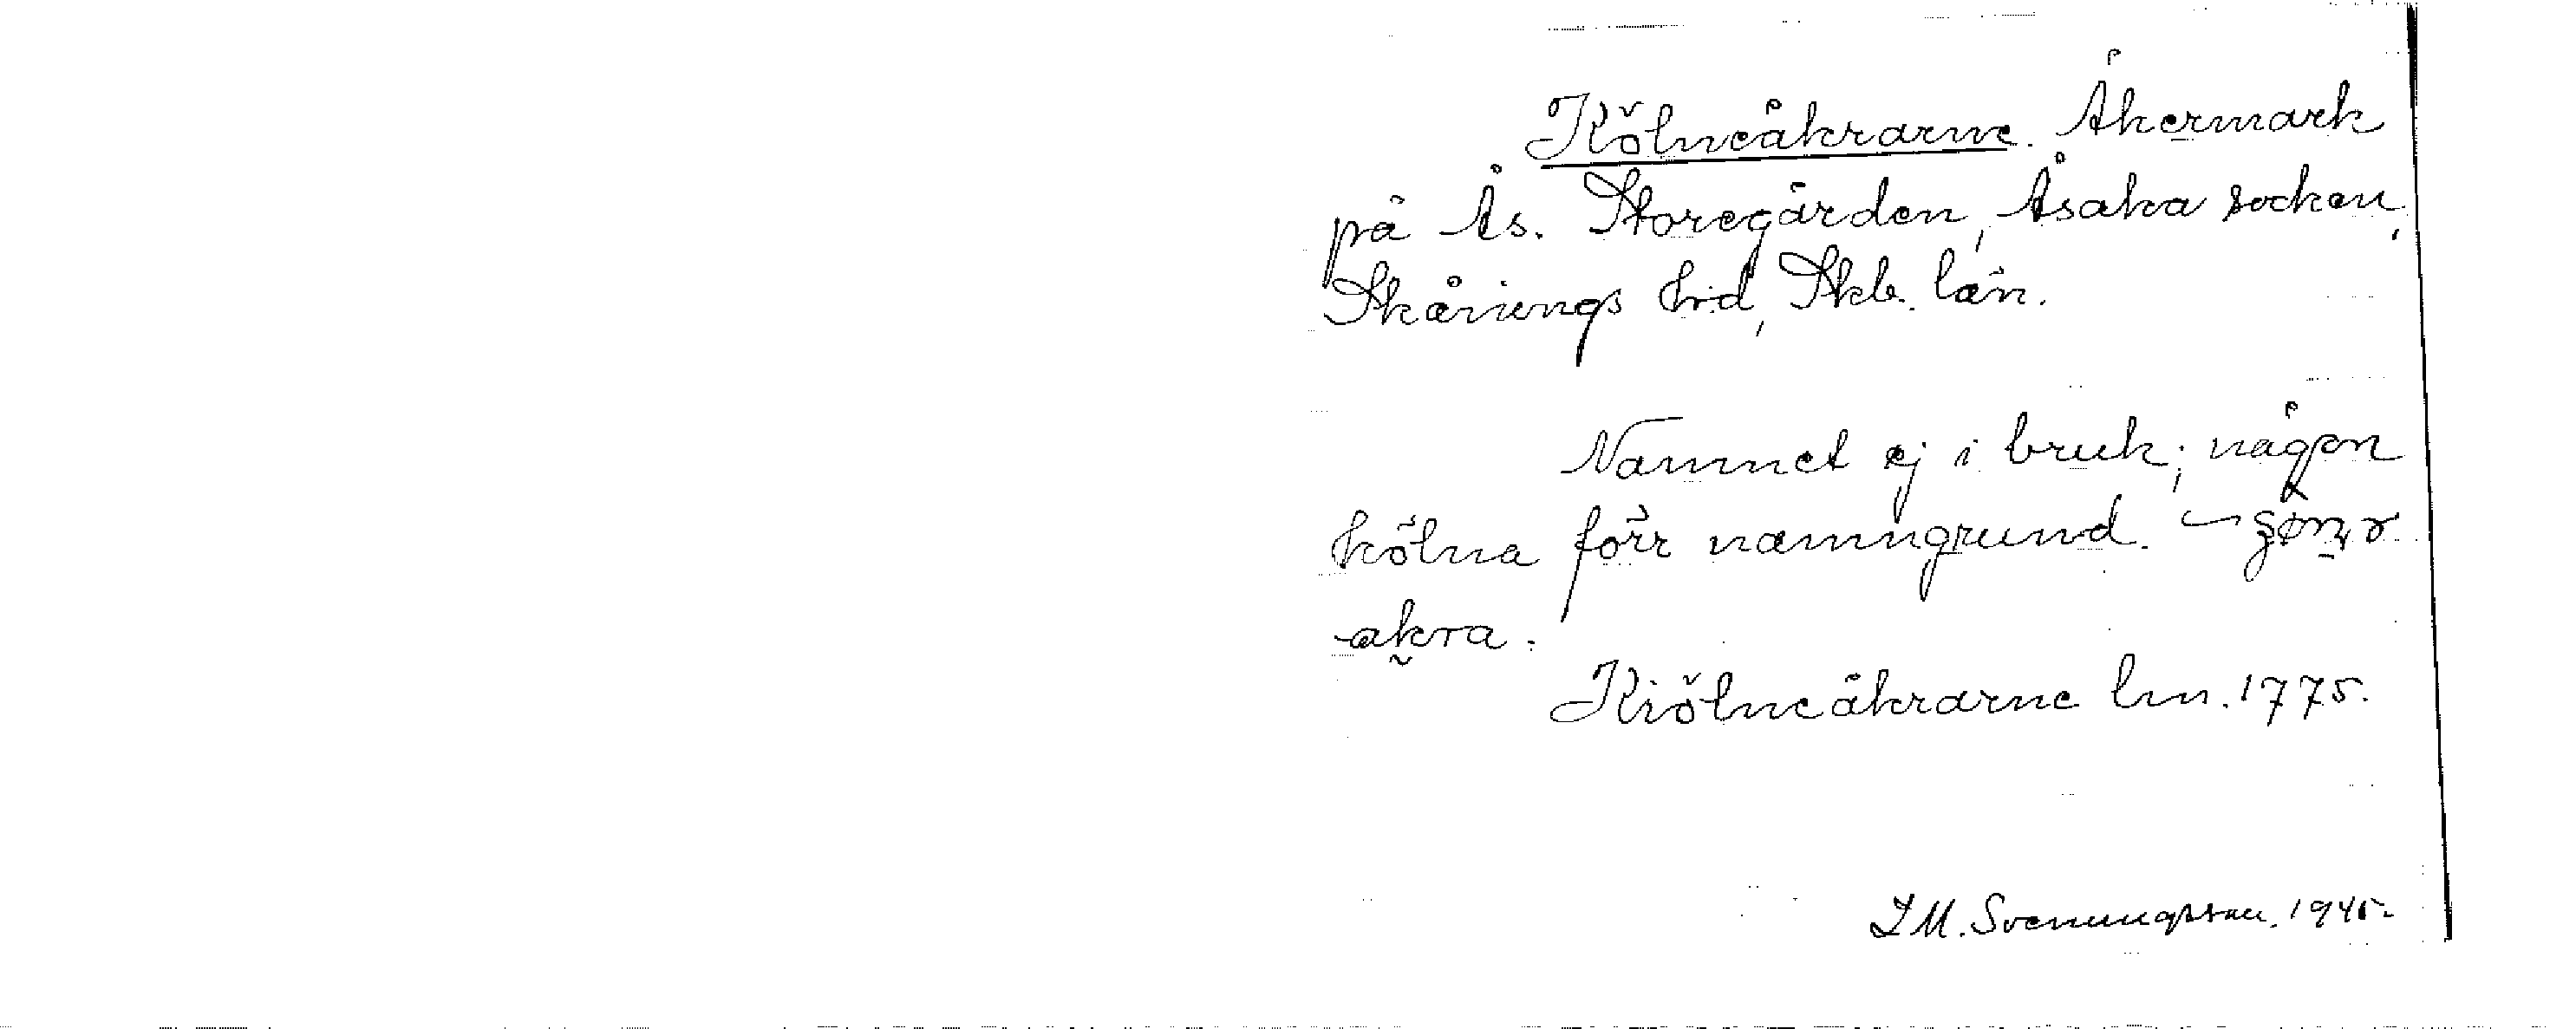 Kölneåkrarne. Åkermark
på Ås. Storegården, Åsaka socken,
Skånings hrd, Skb. län.
Namnet ej i bruk; någon
kölna förr namngrund.
åkra.
Kiölneåkrarne lm. 1775.
I M. Svenungsson. 1945.